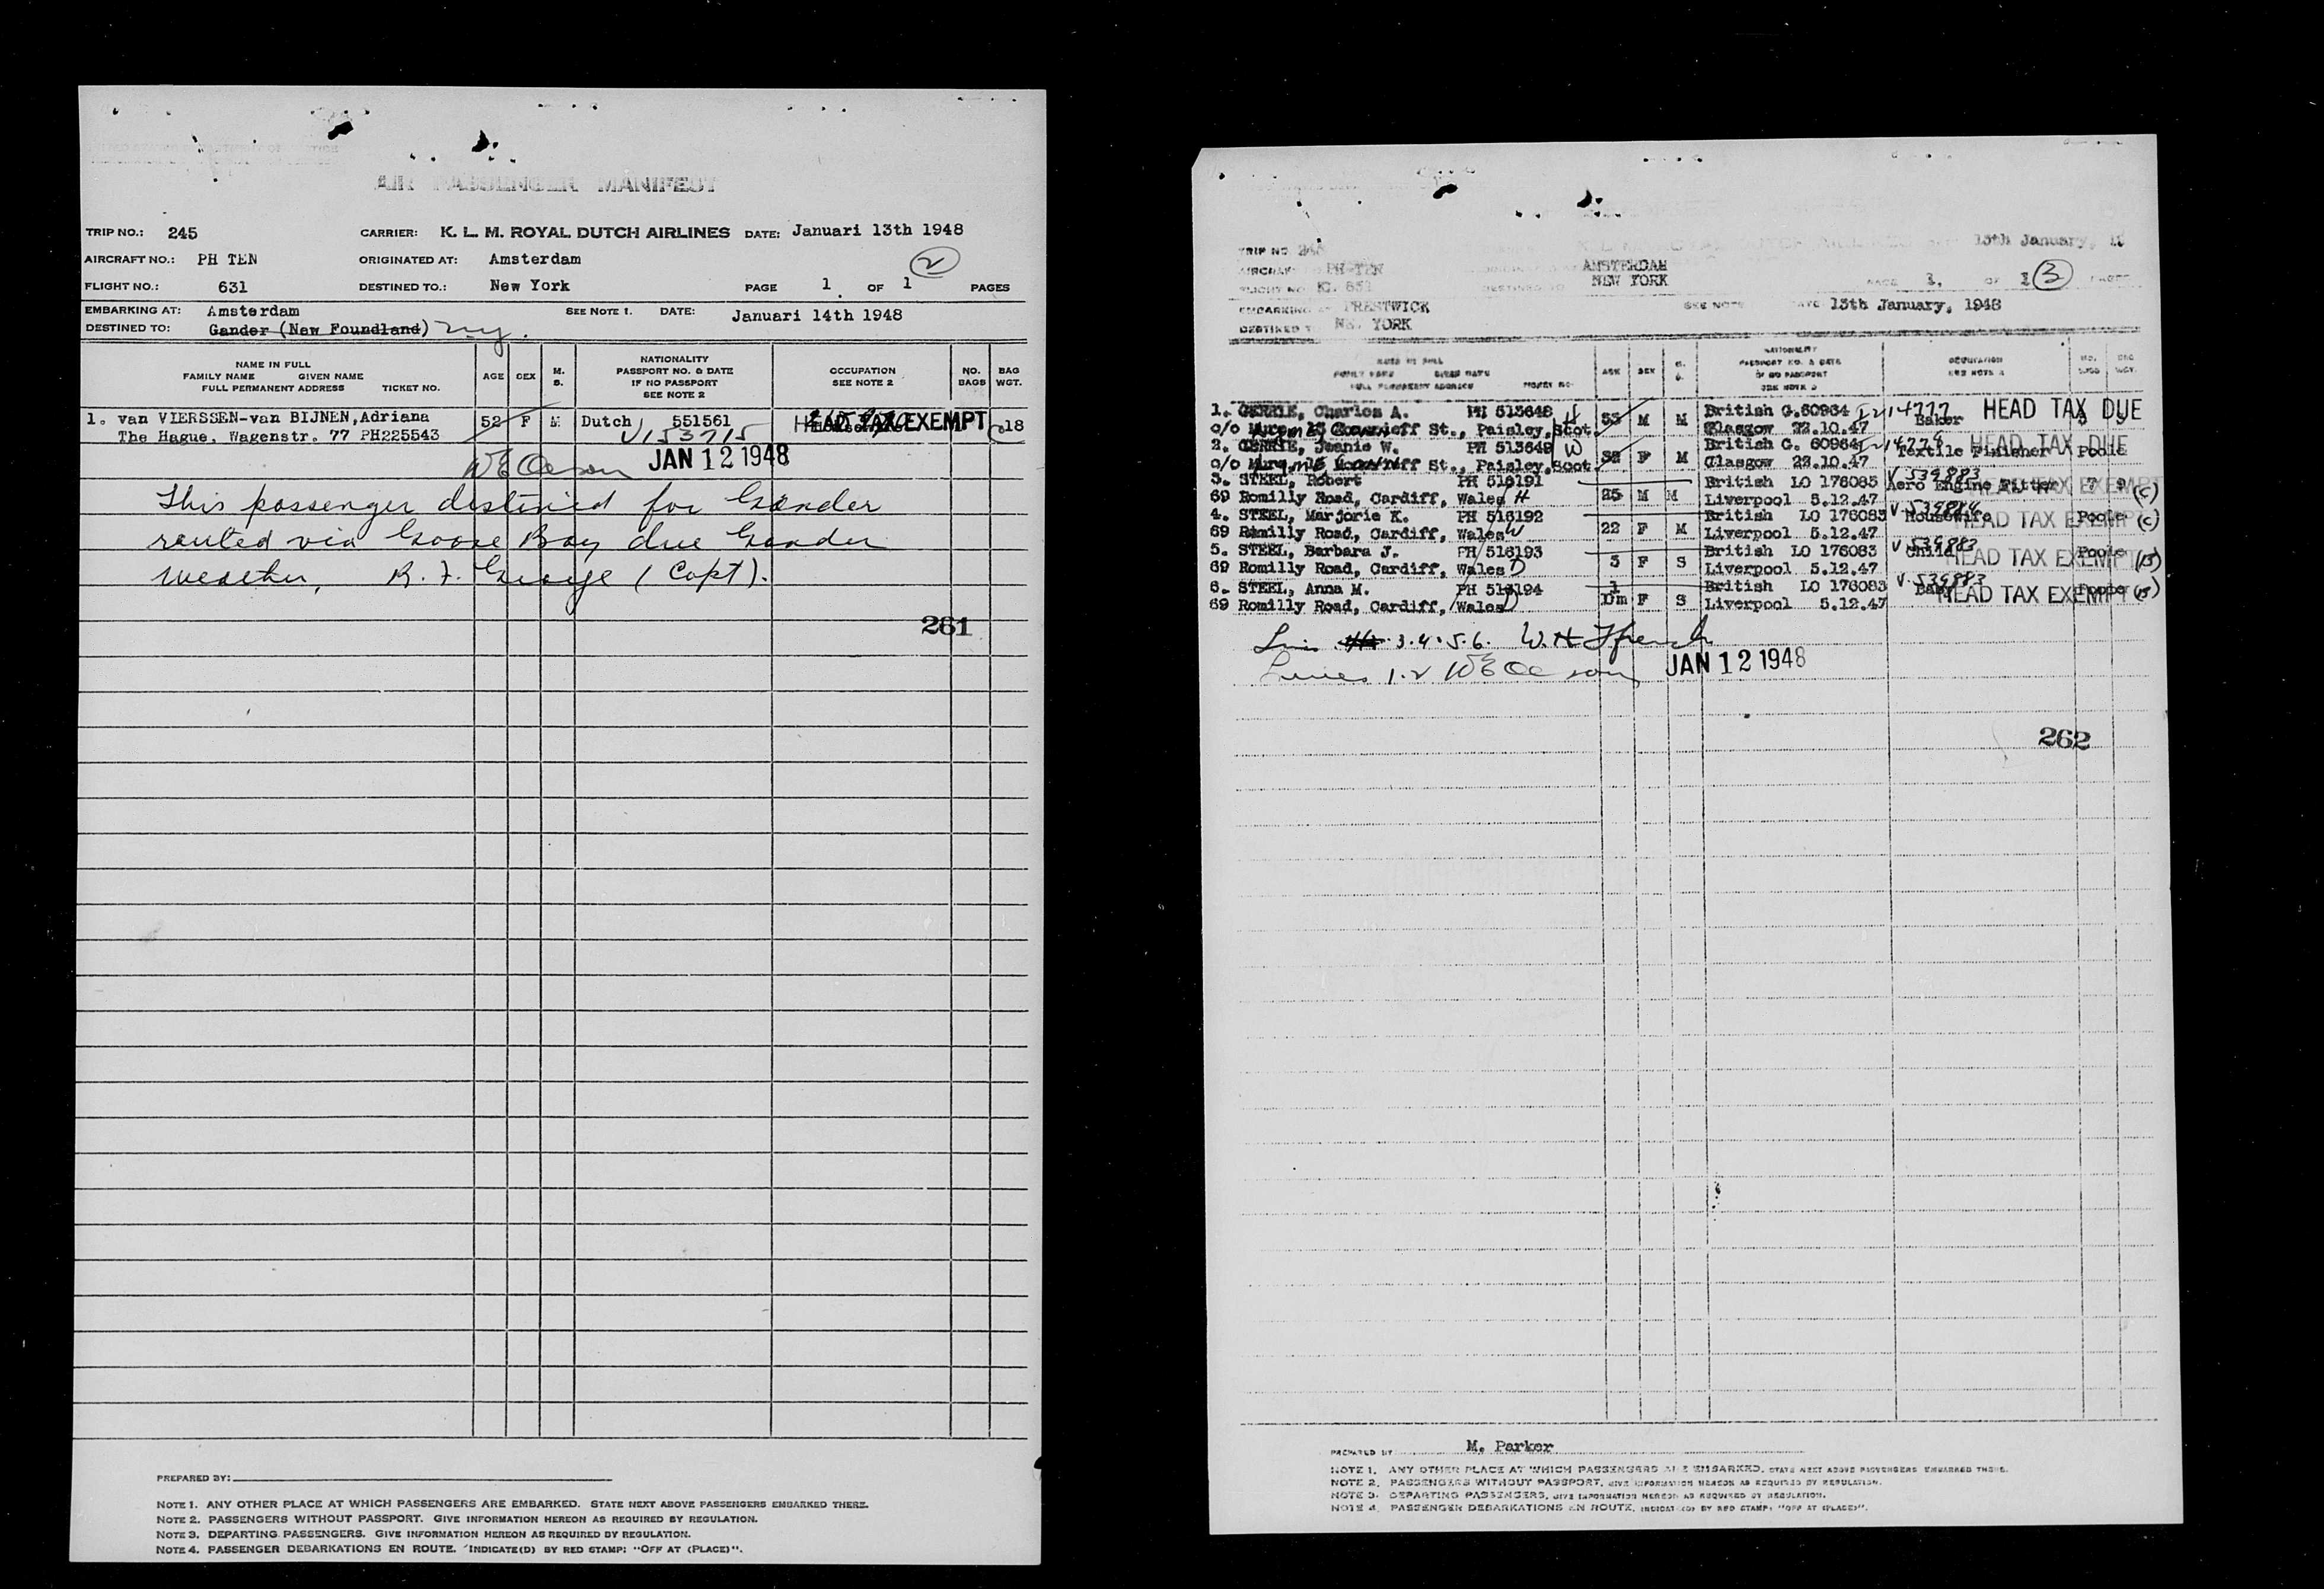 AIR PASSENGER MANIFEST
TRIP NO.: 245 CARRIER: K. L. M. ROYAL DUTCH AIRLINES DATE: Januari 13th 1948
AIRCRAFT NO.: PH TEN ORIGINATED AT: Amsterdam 2
FLIGHT NO.: 631 DESTINED TO.: New York PAGE 1 OF 1 PAGES
EMBARKING AT: Amsterdam SEE NOTE 1. DATE: Januari 14th 1948
DESTINED TO: Gander (New Foundland) ny.
NAME IN FULL
FAMILY NAME GIVEN NAME
FULL PERMANENT ADDRESS TICKET NO.
AGE SEX M. S.
NATIONALITY
PASSPORT NO. & DATE
IF NO PASSPORT
SEE NOTE 2
OCCUPATION
SEE NOTE 2
NO. BAGS
BAG WGT.
1. van VIERSSEN-van BIJNEN,Adriana 52 F M Dutch 551561 HEAD TAX EXEMPT 18
The Hague, Wagenstr. 77 PH225543 V153715
JAN 12 1948
This passenger destined for Gander
routed via Goose Bay due Gander
weather, R. F. George (Capt).
261
PREPARED BY:
NOTE 1. ANY OTHER PLACE AT WHICH PASSENGERS ARE EMBARKED. STATE NEXT ABOVE PASSENGERS EMBARKED THERE.
NOTE 2. PASSENGERS WITHOUT PASSPORT. GIVE INFORMATION HEREON AS REQUIRED BY REGULATION.
NOTE 3. DEPARTING PASSENGERS. GIVE INFORMATION HEREON AS REQUIRED BY REGULATION.
NOTE 4. PASSENGER DEBARKATIONS EN ROUTE. INDICATE(D) BY RED STAMP: "OFF AT (PLACE)".
TRIP NO 13th January,
AIRCRAFT PH-TEN AMSTERDAM
FLIGHT NO KL 631 DESTINED TO NEW YORK PAGE 1. OF 1 3 PAGES
EMBARKING AT PRESTWICK SEE NOTE DATE 13th January, 1948
DESTINED TO NEW YORK
NAME IN FULL
FAMILY NAME GIVEN NAME
FULL PERMANENT ADDRESS
AGE SEX
NATIONALITY
PASSPORT NO. & DATE
IF NO PASSPORT
SEE NOTE 2
OCCUPATION
1. GERRIE, Charles A. PH 513648 H 55 M M British G.60964 Baker HEAD TAX DUE
St., Paisley, Scot. Glasgow 22.10.47
2. GERRIE, Jeanie W. PH 513649 W F M British G. 60964 Textile Finisher HEAD TAX DUE Poole
St., Paisley, Scot. Glasgow 22.10.47
3. STEEL, Robert PH 516191 25 M M British LO 176083 V 539883 Aero Engine Fitter HEAD TAX EXEMPT (C)
69 Romilly Road, Cardiff, Wales H Liverpool 5.12.47
4. STEEL, Marjorie K. PH 516192 22 F M British LO 176083 V-539884 Housewife HEAD TAX EXEMPT (C)
69 Romilly Road, Cardiff, Wales W Liverpool 5.12.47
5. STEEL, Barbara J. PH 516193 3 F S British LO 176083 V 539883 Child HEAD TAX EXEMPT
69 Romilly Road, Cardiff, Wales D Liverpool 5.12.47
6. STEEL, Anna M. PH 516194 F S British LO 176083 V. 539883 Baby HEAD TAX EXEMPT
69 Romilly Road, Cardiff, Wales D Liverpool 5.12.47
3.4.5.6. W.H.
Lines 1.2 JAN 12 1948
262
PREPARED BY M. Parker
NOTE 1. ANY OTHER PLACE AT WHICH PASSENGERS ARE EMBARKED. STATE NEXT ABOVE PASSENGERS EMBARKED THERE.
NOTE 2. PASSENGERS WITHOUT PASSPORT. GIVE INFORMATION HEREON AS REQUIRED BY REGULATION.
NOTE 3. DEPARTING PASSENGERS. GIVE INFORMATION HEREON AS REQUIRED BY REGULATION.
NOTE 4. PASSENGER DEBARKATIONS EN ROUTE. INDICATE(D) BY RED STAMP: "OFF AT (PLACE)".